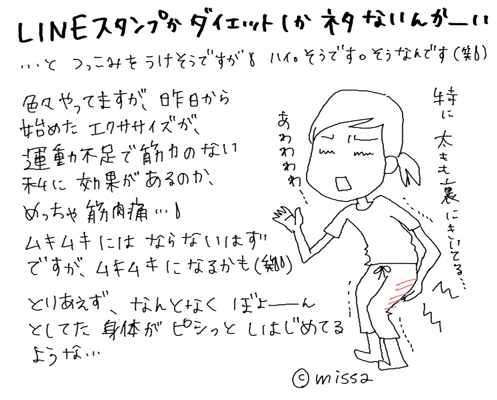 LINEスタンプかダイエットしかネタないんかーい
…と つっこみをうけそうですが！ハイ。そうです。そうなんです(笑)
色々やってますが、昨日から
始めた エクササイズが、
運動不足で筋力のない
私に 効果があるのか、
めっちゃ筋肉痛…！
ムキムキには ならないはず
ですが、ムキムキになるかも(笑)
とりあえず、なんとなく ぼよーーん
としてた 身体が ピシっと しはじめてる
ような…
あわわわわ…
特に 太もも裏にきいてる…
©missa